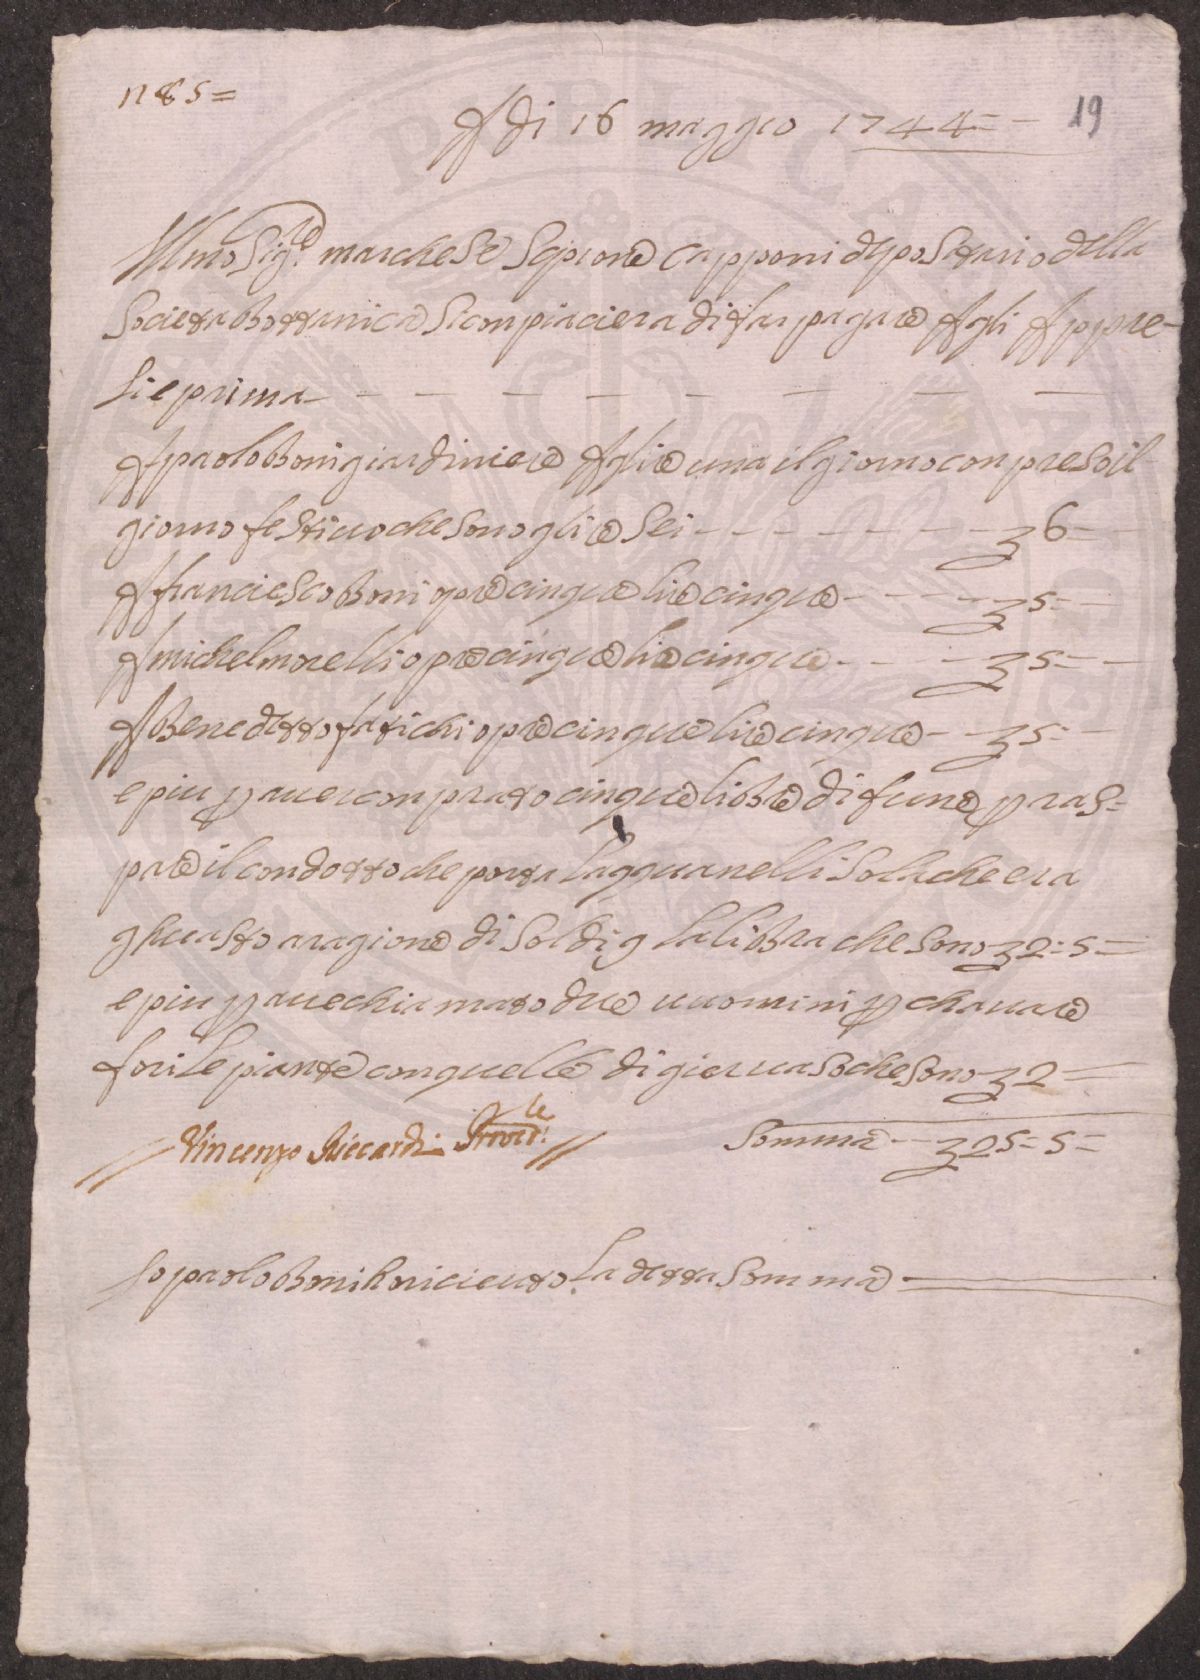 n 85=
19
A di 16 maggio 1744=
Illmo Sigre marchese Scpione Capponi depositario della
Societa Bottanica Siconpiaciera di far pagare Agli Appre-
Sie prima
A paolo Boni giardiniere A lire una il giorno conpreso il
giorno festiuo che sono lire Sei 6=
A franciesco Boni opre cinque lire cinque 5=
A michel morelli opre cinque lire cinque 5=
A Benedetto fatichi opre cinque lire cinque 5=
e piu p auer conprato cinque libbre di fune p ras=
pare il condotto che porta lagqua nelli Sola che era
ghuasto aragione di Soldi 9 la libbra che sono 2=5=
e piu p aue chiamato due uuomini p chauare
fori le piante con quelle di gieruaso che sono 2=
Vincenzo Riccardi Provdle
Somma 25=5=
Io paolo Boni ho riceuto la detta Somma